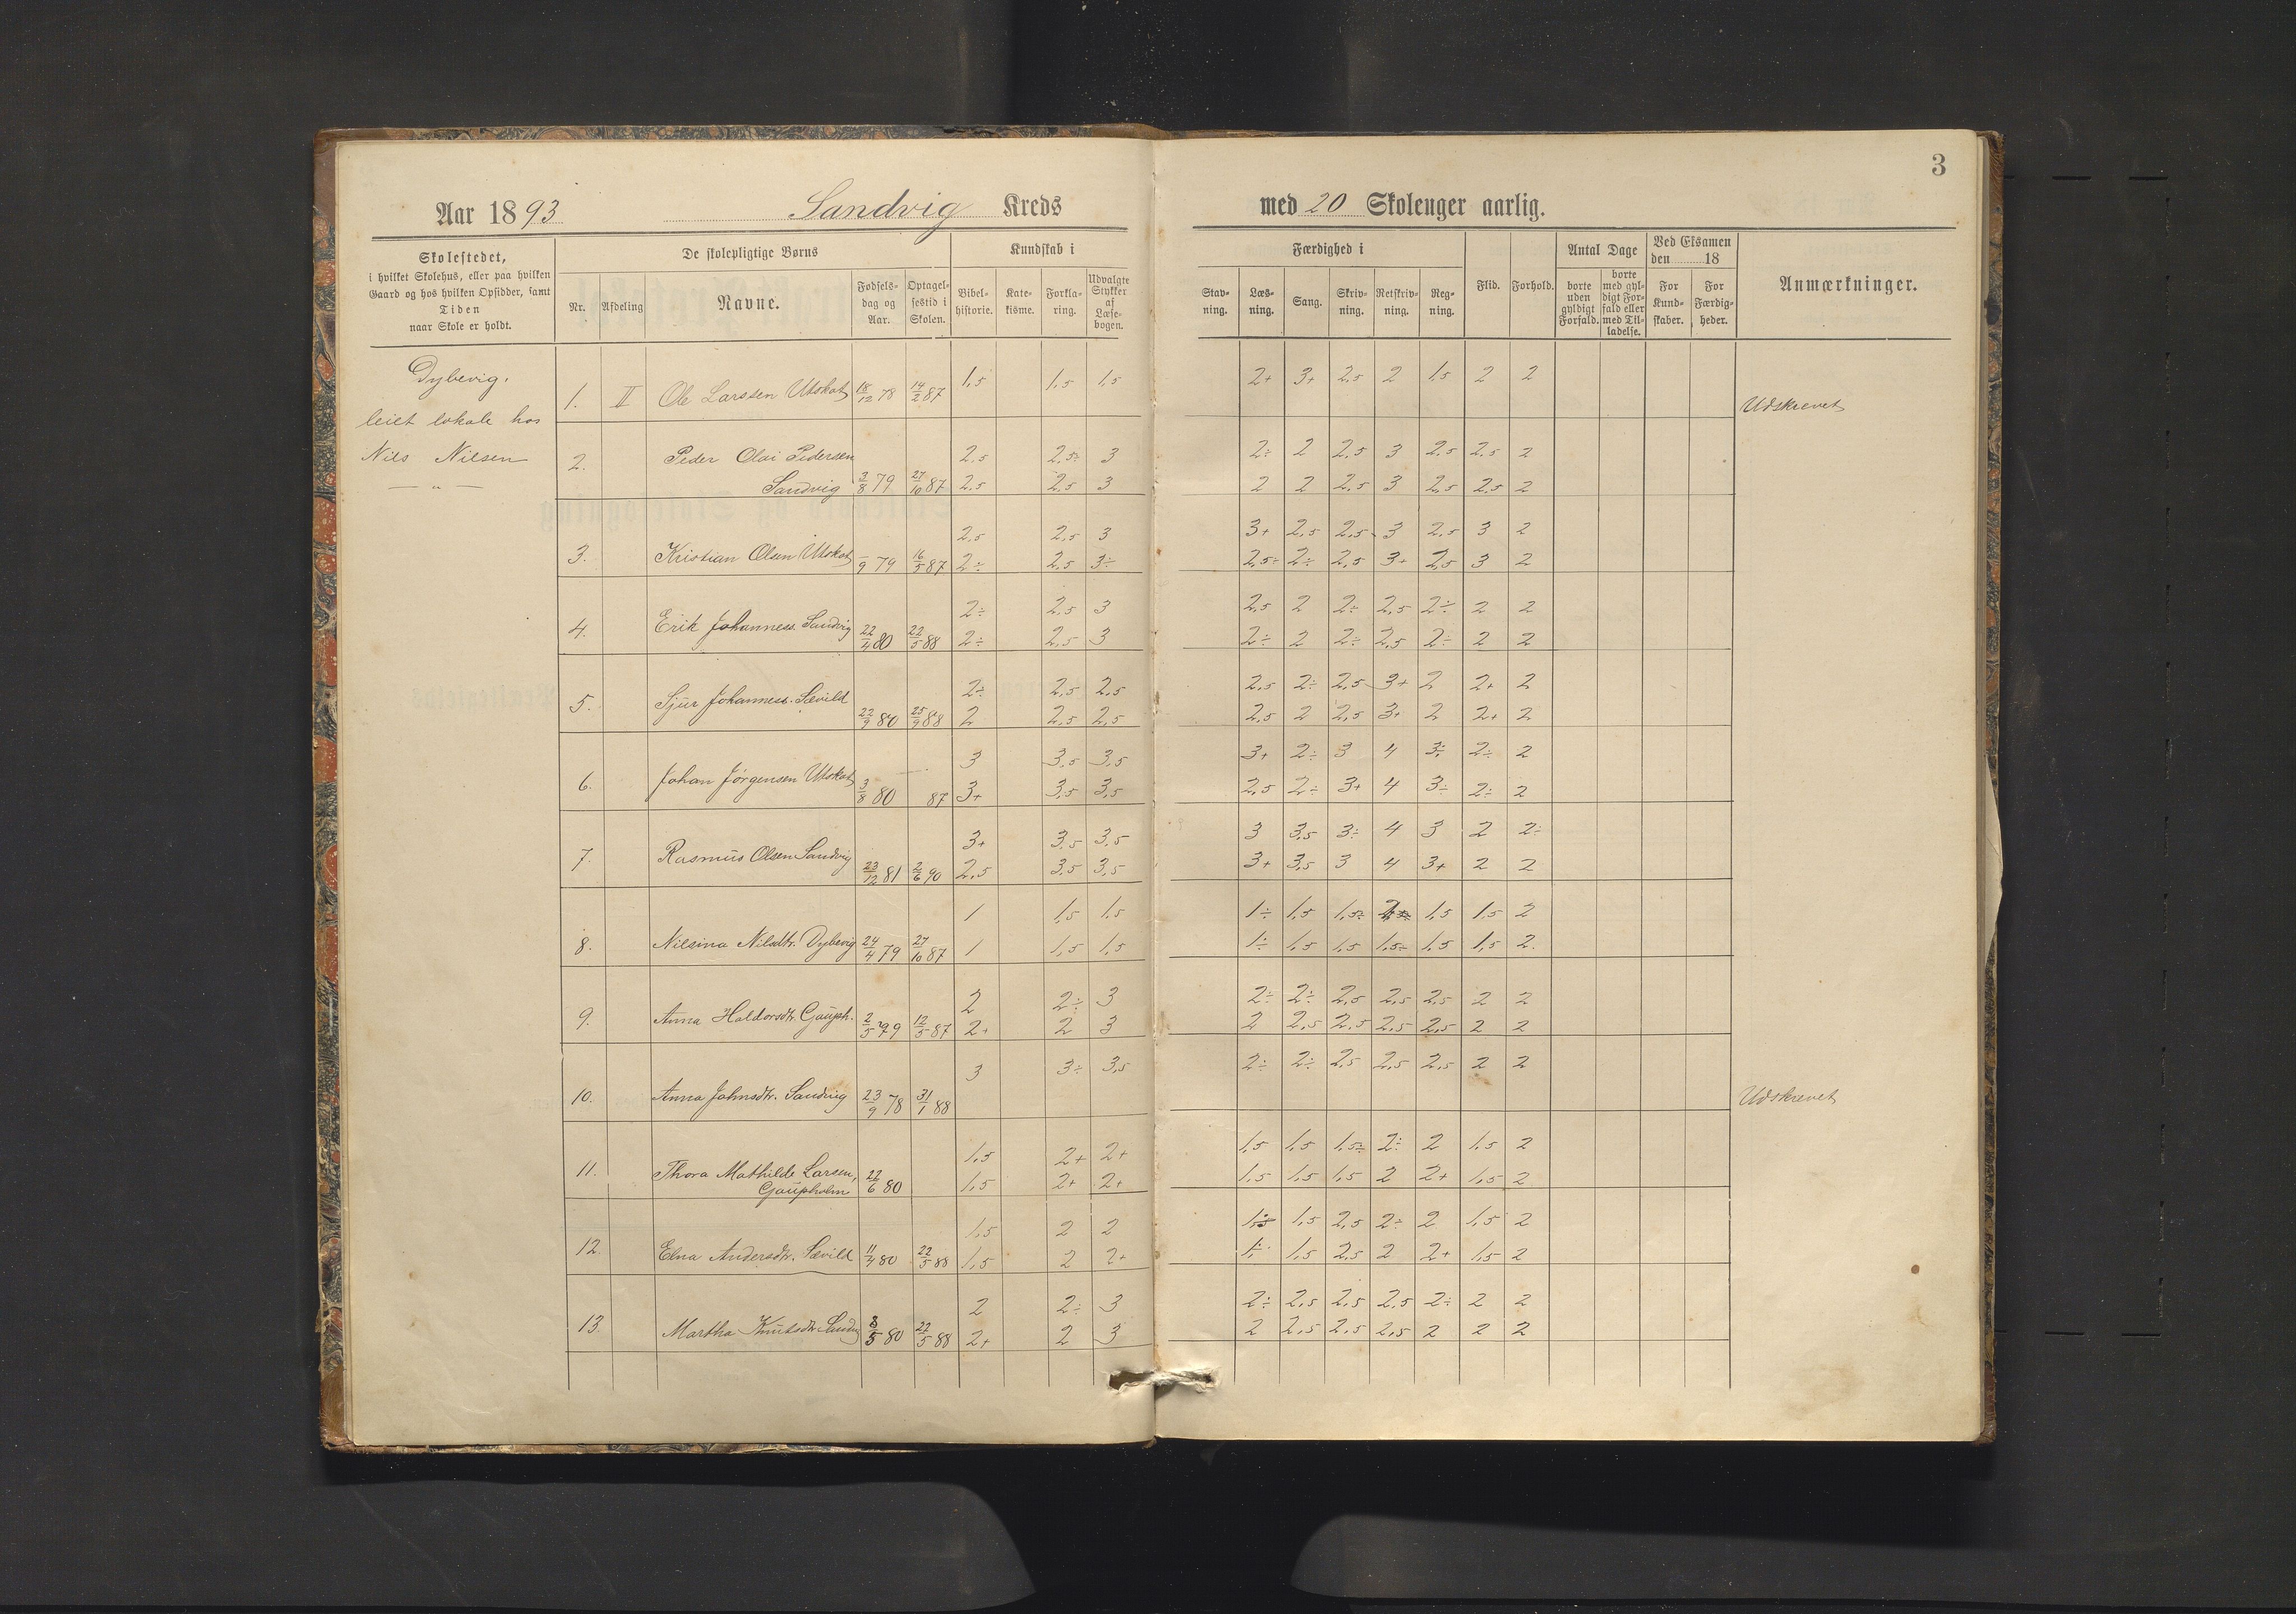 3
Aar 1893 Sandvig Kreds med 20 Skoleuger aarlig.
Skolestedet,
i hvilket Skolehus, eller paa hvilken
Gaard og hos hvilken Opsidder, samt
Tiden
naar Skole er holdt.
De skolepligtige Børns
Nr. Afdeling Navne. Fødsels-dag og Aar. Optagel-sestid i Skolen.
Kundskab i
Bibel-historie. Kate-kisme. Forkla-ring. Udvalgte Stykker af Læse-bogen.
Færdighed i
Stav-ning. Læs-ning. Sang. Skriv-ning. Retskriv-ning. Reg-ning.
Flid. Forhold.
Antal Dage
borte uden gyldigt Forfald. borte med gyl-digt For-fald eller med Til-ladelse.
Ved Eksamen
den 18
For Kund-skaber. For Færdig-heder.
Anmærkninger.
Dybevig.
leiet lokale hos
Nils Nilsen
— " —
1. II Ole Larssen Utskot 18/12 78 14/2 87 1,5 1,5 1,5 2+ 3+ 2,5 2 1,5 2 2 Udskrevet
2. Peder Olai Pedersen 2,5 2,5÷ 3 2÷ 2 2,5 3 2,5 2,5 2
Sandvig 3/8 79 27/10 87 2,5 2,5 3 2 2 2,5 3 2,5 2,5 2
2,5 2,5 3 3+ 2,5 2,5 3 2,5 3 2
3. Kristian Olsen Utskot —/9 79 16/5 87 2÷ 2,5 3÷ 2,5÷ 2÷ 2,5 3+ 2,5 3 2
2÷ 2,5 3 2,5 2 2÷ 2,5 2÷ 2 2
4. Erik Johanness. Sandvig 22/4 80 22/5 88 2÷ 2,5 3 2÷ 2 2÷ 2,5 2÷ 2 2
2÷ 2,5 2,5 2,5 2÷ 2,5 3+ 2 2+ 2
5. Sjur Johanness. Sævild 22/9 80 25/9 88 2 2,5 2,5 2,5 2 2,5 3+ 2 2+ 2
3 3,5 3,5 3+ 2÷ 3 4 3÷ 2÷ 2
6. Johan Jörgensen Utskot 3/8 80 87 3+ 3,5 3,5 2,5 2÷ 3+ 4 3÷ 2÷ 2
3+ 3,5 3,5 3 3,5 3÷ 4 3 2 2÷
7. Rasmus Olsen Sandvig 23/12 81 2/6 90 2,5 3,5 3,5 3+ 3,5 3 4 3+ 2 2
1 1,5 1,5 1÷ 1,5 1,5÷ 1,5 1,5 2
8. Nilsina Nilsdtr. Dybevig 24/4 79 27/10 87 1 1,5 1,5 1÷ 1,5 1,5 1,5÷ 1,5 1,5 2.
2 2÷ 3 2÷ 2÷ 2,5 2,5 2,5 2 2
9. Anna Haldorsdtr. Gauph. 2/5 79 12/5 87 2+ 2 3 2 2,5 2,5 2,5 2,5 2 2
3 3÷ 3,5 2÷ 2÷ 2,5 2,5 2,5 2 2
10. Anna Johnsdtr. Sandvig 23/9 78 31/1 88 Udskrevet
1,5 2+ 2+ 1,5 1,5 1,5÷ 2÷ 2 1,5 2
11. Thora Mathilde Larsen, 22/6 80 1,5 2+ 2+ 1,5 1,5 1,5 2 2+ 1,5 2
Gaupholm
1,5 2 2 1,5 2,5 2÷ 2 1,5 2
12. Elna Andersdtr. Sævild 11/4 80 22/5 88 1,5 2 2+ 1÷ 1,5 2,5 2 2+ 1,5 2
2 2÷ 3 2÷ 2,5 2,5 2,5 2÷ 2 2
13. Martha Knutsdtr. Sandvig 8/5 80 22/5 88 2+ 2 3 2 2,5 2,5 2,5 2 2 2